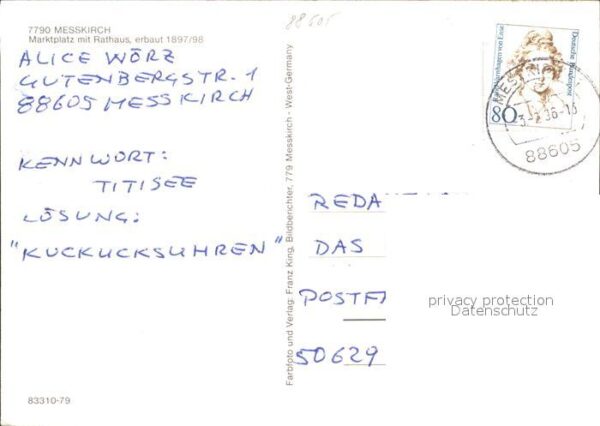 88605
7790 MESSKIRCH
Marktplatz mit Rathaus, erbaut 1897/98
ALICE WÖRZ
GUTENBERGSTR. 1
88605 MESSKIRCH
KENNWORT:
TITISEE
LÖSUNG:
"KUCKUCKSUHREN"
83310-79
Farbfoto und Verlag: Franz King, Bildberichter, 779 Messkirch - West-Germany
Deutsche Bundespost
80
MESSKIRCH
88605
REDA
DAS
POSTF
50629
privacy protection
Datenschutz